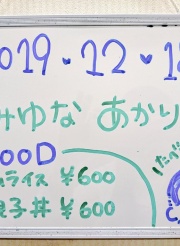 2019・12・1
みゆな あかり
FOOD
ムライス ¥600
親子丼 ¥600
たべ